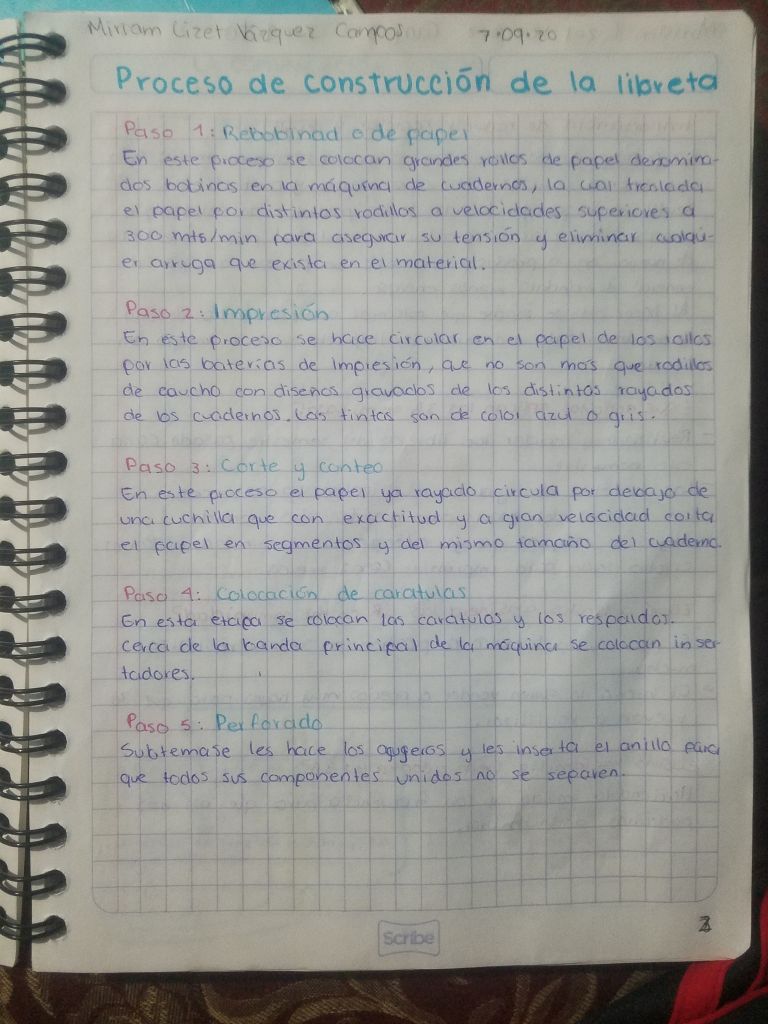 Miriam Lizet Vázquez Campos 7·09·20
Proceso de construcción de la libreta
Paso 1: Rebobinad o de papel
En este proceso se colocan grandes rollos de papel denomina-
dos bobinas en la máquina de cuadernos, la cual trenlada
el papel por distintos rodillos a velocidades superiores a
300 mts/min para asegurar su tensión y eliminar cualqui-
er arruga que exista en el material.
Paso 2: Impresión
En este proceso se hace circular en el papel de los rollos
por las baterías de impresión, que no son mas que rodillos
de caucho con diseños gravados de los distintos rayados
de los cuadernos. Las tintas son de color azul o gris.
Paso 3: Corte y conteo
En este proceso el papel ya rayado circula por debajo de
una cuchilla que con exactitud y a gran velocidad corta
el papel en segmentos y del mismo tamaño del cuaderno.
Paso 4: Colocación de caratulas
En esta etapa se colocan las caratulas y los respaldos.
cerca de la banda principal de la máquina se colocan inser
tadores.
Paso 5: Perforado
Subtemase les hace los agugeros y les inserta el anillo para
que todos sus componentes unidos no se separen.
Scribe